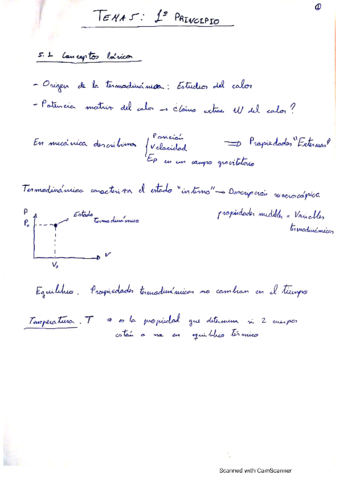 ①
TEMA 5: 1º PRINCIPIO
5.1 Conceptos básicos
- Origen de la termodinámica: Estudios del calor
- Potencia motriz del calor → Cómo extraer W del calor?
En mecánica describimos { Posición
Velocidad ⟹ Propiedades "Externas"
Ep en un campo gravitatorio
Termodinámica caracteriza el estado "interno" → Descripción macroscópica
propiedades medibles = Variables
termodinámicas
P
P₀
Estado
termodinámico
V₀
V
Equilibrio. Propiedades termodinámicas no cambian en el tiempo
Temperatura. T → es la propiedad que determina si 2 cuerpos
están o no en equilibrio térmico
Scanned with CamScanner